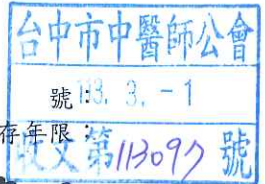 台中市中醫師公會
號：113. 3. -1
存年限：
收文第113097號